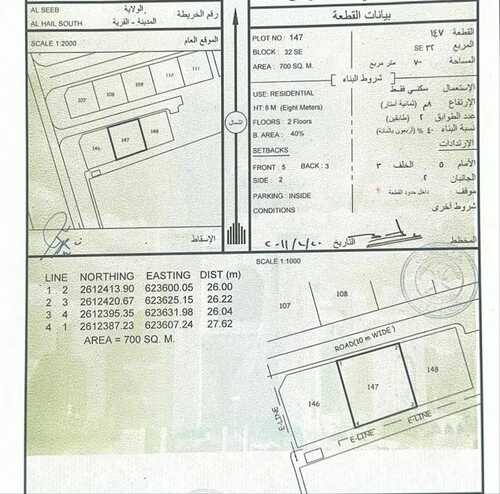 AL SEEB
الولاية
AL HAIL SOUTH
المدينة - القرية
رقم الخريطة
SCALE 1:2000
الموقع العام
107
108
109
110
111
146
147
148
الإسقاط
الشمال
بيانات القطعة
PLOT NO : 147
القطعة ١٤٧
BLOCK : 32 SE
المربع ٣٢ SE
AREA : 700 SQ. M.
المساحة ٧٠٠ متر مربع
شروط البناء
USE: RESIDENTIAL
الإستعمال سكني فقط
HT: 8 M (Eight Meters)
الإرتفاع ٨م (ثمانية أمتار)
FLOORS : 2 Floors
عدد الطوابق ٢
B. AREA : 40%
نسبة البناء ٤٠٪ (أربعون بالمائة)
SETBACKS
الإرتدادات
FRONT : 5 BACK : 3
الأمام ٥ الخلف ٣
SIDE : 2
الجانبان ٢
PARKING : INSIDE
موقف داخل حدود القطعة
CONDITIONS
شروط أخرى
المخطط
التاريخ
LINE NORTHING EASTING DIST (m)
1 2 2612413.90 623600.05 26.00
2 3 2612420.67 623625.15 26.22
3 4 2612395.35 623631.98 26.04
4 1 2612387.23 623607.24 27.62
AREA = 700 SQ. M.
SCALE 1:1000
107
108
ROAD(10 m WIDE)
146
147
148
E-LINE
E-LINE
E-LINE